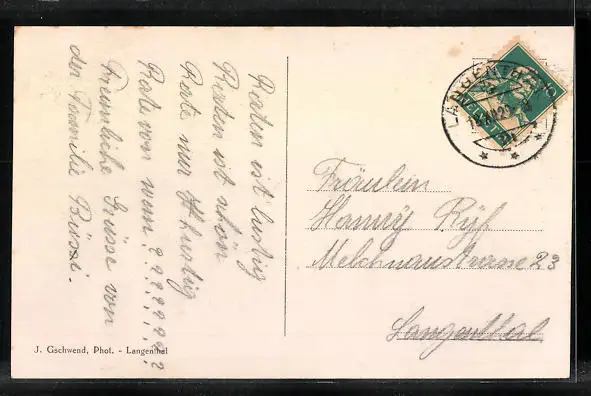 Raten ist lustig
Raten ist schön
Rate nur Hustig
Rate von wem ? ? ? ? ? ? ?
Freundliche Grüsse von
der Familie
J. Gschwend, Phot. - Langenthal
LANGENTHAL
HELVETIA
Fräulein
Hanny Ryf
Melchnaustrasse 23
Langenthal